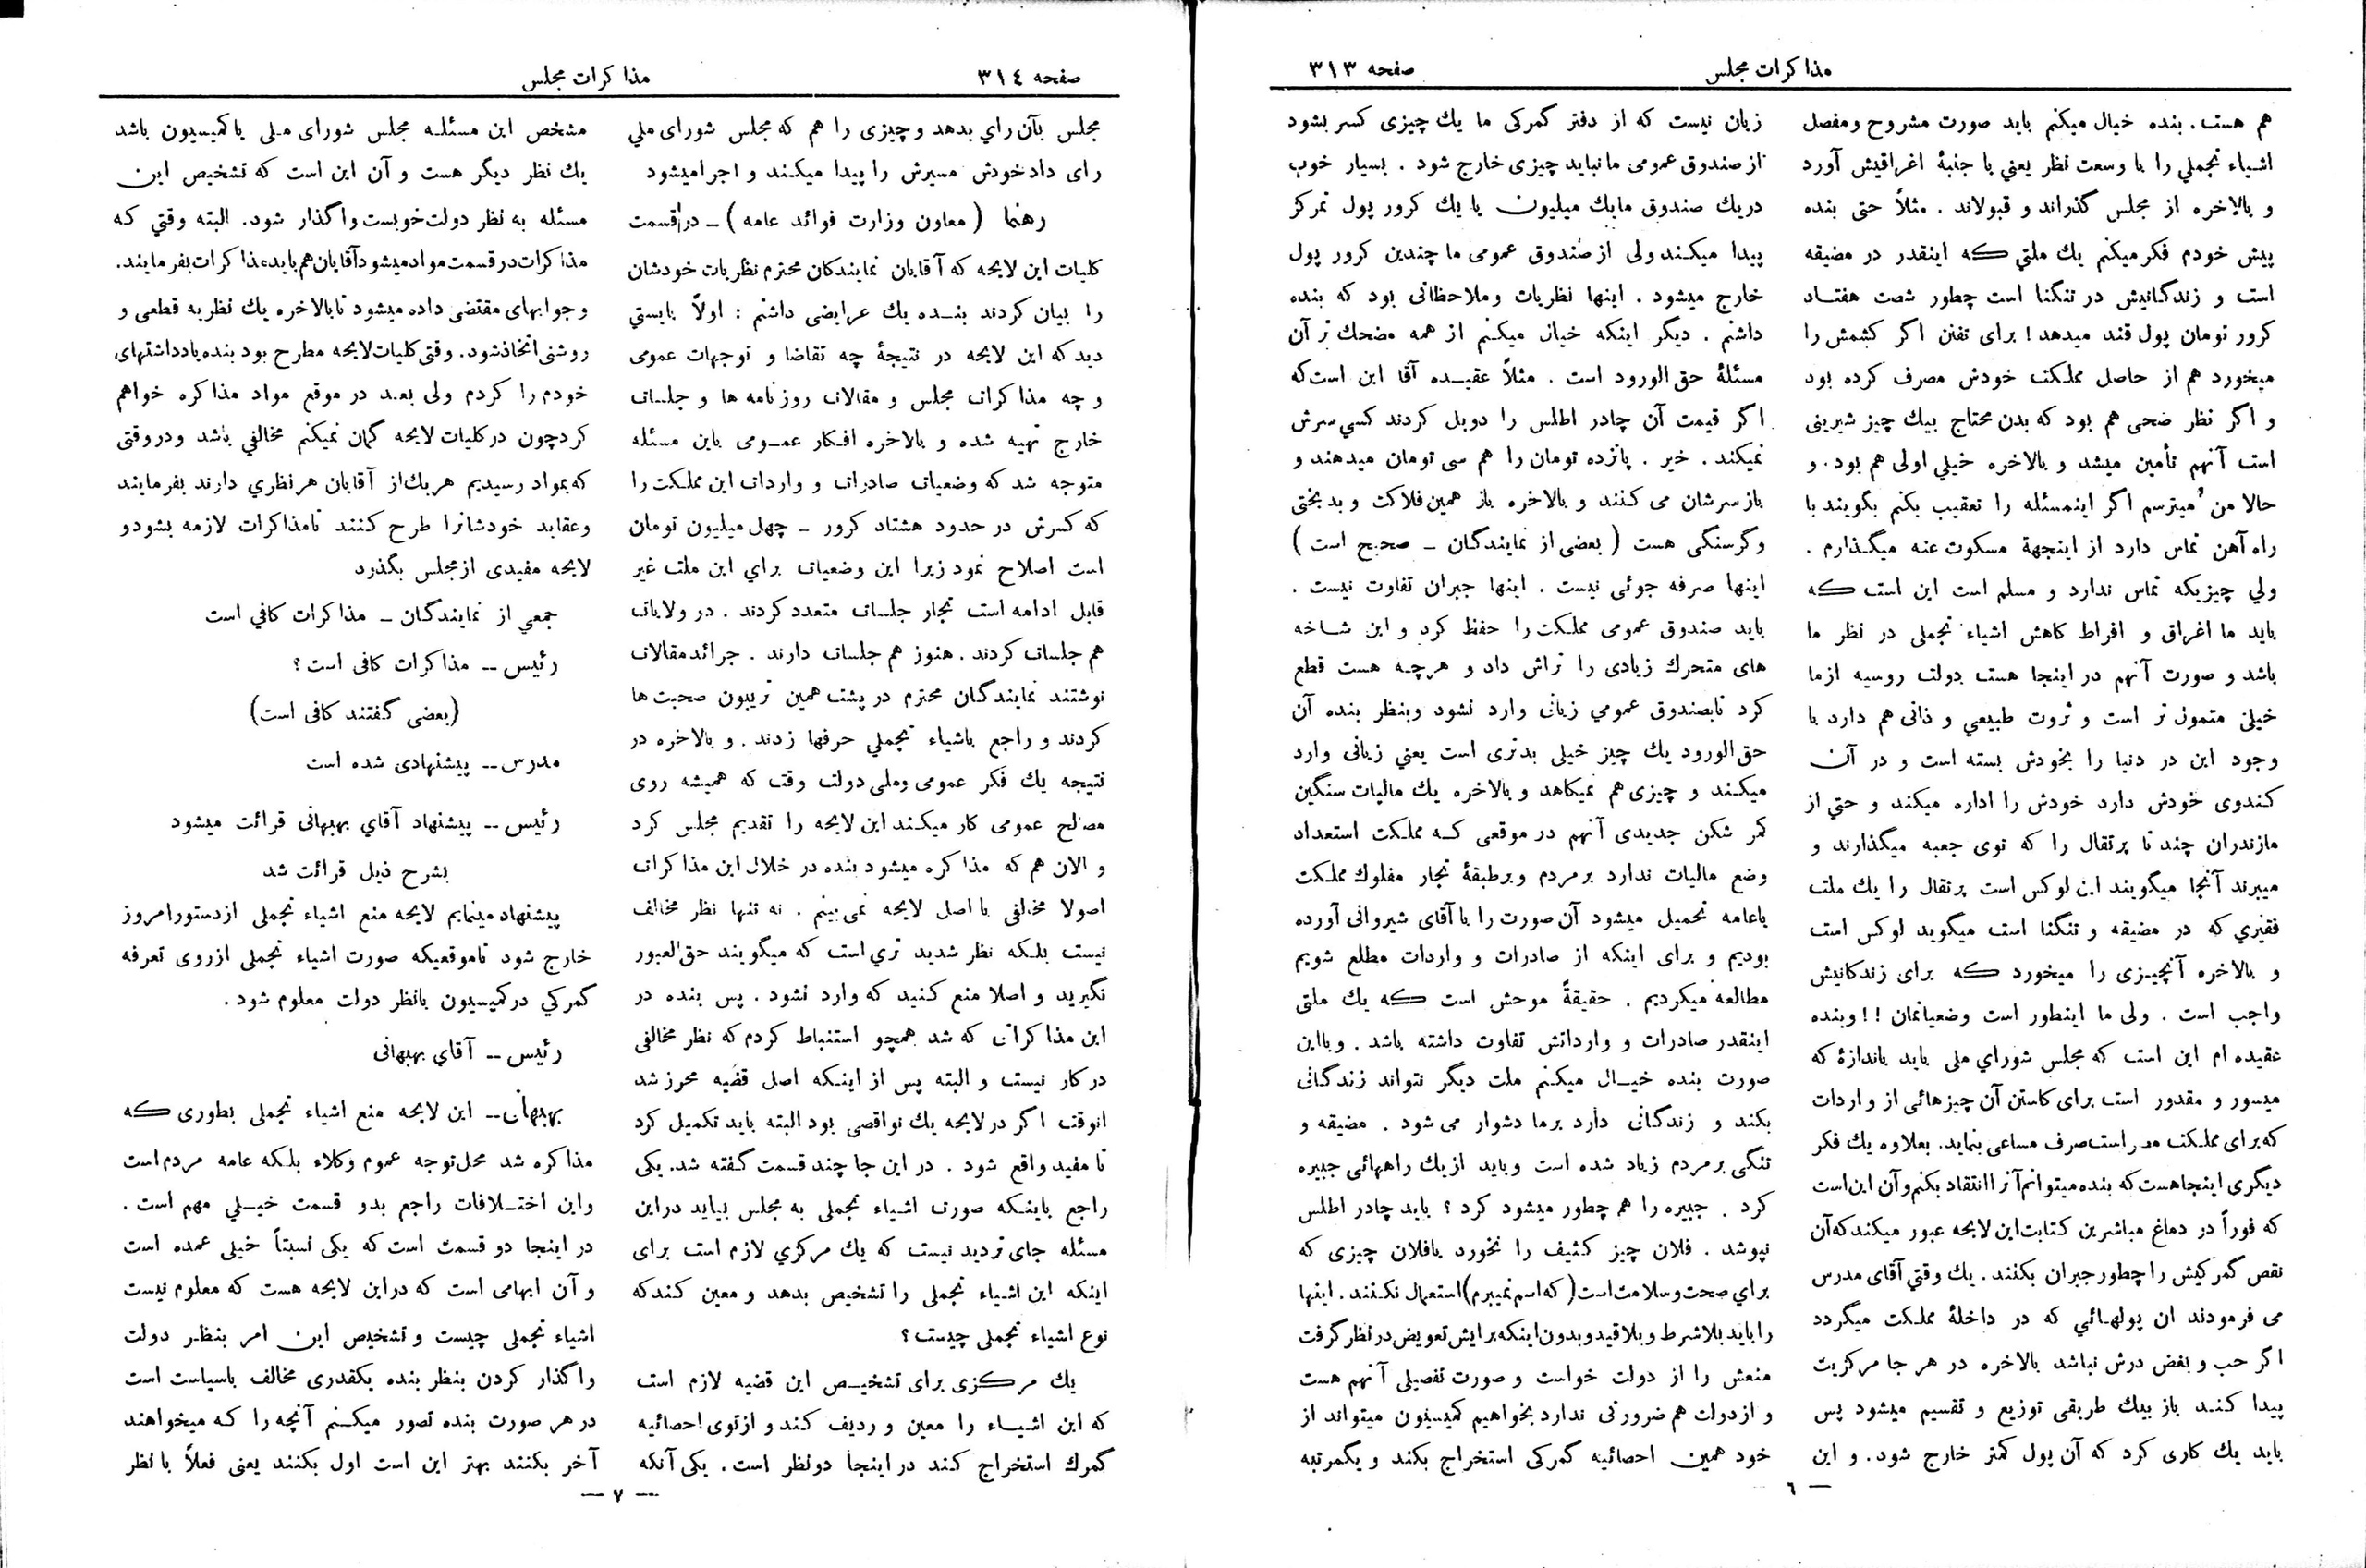 مذاکرات مجلس
صفحه ۳۱۳
هم هست . بنده خیال میکنم باید صورت مشروح و مفصل
اشیاء تجملی را با وسعت نظر یعنی با جنبهٔ اغراقیش آورد
و بالاخره از مجلس گذراند و قبولاند . مثلاً حتی بنده
پیش خودم فکر میکنم یك ملتی که اینقدر در مضیقه
است و زندگانیش در تنگنا است چطور شصت هفتاد
کرور تومان پول قند میدهد ! برای تفنن اگر کشمش را
میخورد هم از حاصل مملکت خودش مصرف کرده بود
و اگر نظر صحی هم بود که بدن محتاج بیك چیز شیرینی
است آنهم تأمین میشد و بالاخره خیلی اولی هم بود . و
حالا من میترسم اگر اینمسئله را تعقیب بکنم بگویند با
راه آهن تماس دارد از اینجهة مسکوت عنه میگذارم .
ولی چیزیکه تماس ندارد و مسلم است این است که
باید ما اغراق و افراط کاهش اشیاء تجملی در نظر ما
باشد و صورت آنهم در اینجا هست دولت روسیه از ما
خیلی متمول تر است و ثروت طبیعی و ذاتی هم دارد با
وجود این در دنیا را بخودش بسته است و در آن
کندوی خودش دارد خودش را اداره میکند و حتی از
مازندران چند تا پرتقال را که توی جعبه میگذارند و
میبرند آنجا میگویند این لوکس است پرتقال را یك ملت
فقیری که در مضیقه و تنگنا است میگوید لوکس است
و بالاخره آنچیزی را میخورد که برای زندگانیش
واجب است . ولی ما اینطور است وضعیاتمان !! وبنده
عقیده ام این است که مجلس شورای ملی باید باندازهٔ که
میسور و مقدور است برای کاستن آن چیزهائی از واردات
که برای مملکت مضر است صرف مساعی بنماید . بعلاوه یك فکر
دیگری اینجا هست که بنده میتوانم آنرا انتقاد بکنم و آن این است
که فوراً در دماغ مباشرین کتابت این لایحه عبور میکند که آن
نقص گمرکیش را چطور جبران بکنند . یك وقتی آقای مدرس
می فرمودند ان پولهائی که در داخلهٔ مملکت میگردد
اگر حب و بغض درش نباشد بالاخره در هر جا مرکزیت
پیدا کند باز بیك طریقی توزیع و تقسیم میشود پس
باید یك کاری کرد که آن پول کمتر خارج شود . و این
زیان نیست که از دفتر گمرکی ما یك چیزی کسر بشود
از صندوق عمومی ما نباید چیزی خارج شود . بسیار خوب
دریك صندوق ما یك میلیون یا یك کرور پول تمرکز
پیدا میکند ولی از صندوق عمومی ما چندین کرور پول
خارج میشود . اینها نظریات و ملاحظاتی بود که بنده
داشتم . دیگر اینکه خیال میکنم از همه مضحك تر آن
مسئلهٔ حق الورود است . مثلاً عقیده آقا این است که
اگر قیمت آن چادر اطلس را دوبل کردند کسی سرش
نمیکند . خیر . پانزده تومان را هم سی تومان میدهند و
باز سرشان می کنند و بالاخره باز همین فلاکت و بدبختی
و گرسنگی هست ( بعضی از نمایندگان ـ صحیح است )
اینها صرفه جوئی نیست . اینها جبران تفاوت نیست .
باید صندوق عمومی مملکت را حفظ کرد و این شاخه
های متحرك زیادی را تراش داد و هرچه هست قطع
کرد تا بصندوق عمومی زیانی وارد نشود وبنظر بنده آن
حق الورود یك چیز خیلی بدتری است یعنی زیانی وارد
میکند و چیزی هم نمیکاهد و بالاخره یك مالیات سنگین
کمر شکن جدیدی آنهم در موقعی که مملکت استعداد
وضع مالیات ندارد بر مردم و بر طبقهٔ تجار مفلوك مملکت
یا عامه تحمیل میشود آن صورت را با آقای شیروانی آورده
بودیم و برای اینکه از صادرات و واردات مطلع شویم
مطالعه میکردیم . حقیقةً موحش است که یك ملتی
اینقدر صادرات و وارداتش تفاوت داشته باشد . و با این
صورت بنده خیال میکنم ملت دیگر نتواند زندگانی
بکند و زندگانی دارد برما دشوار می شود . مضیقه و
تنگی بر مردم زیاد شده است و باید از یك راههائی جبیره
کرد . جبیره را هم چطور میشود کرد ؟ باید چادر اطلس
نپوشد . فلان چیز کثیف را نخورد یا فلان چیزی که
برای صحت و سلامت است ( که اسم نمیبرم ) استعمال نکنند . اینها
را باید بلا شرط و بلا قید و بدون اینکه برایش تعویض در نظر گرفت
منعش را از دولت خواست و صورت تفصیلی آنهم هست
و از دولت هم ضرورتی ندارد بخواهیم کمیسیون میتواند از
خود همین احصائیه گمرکی استخراج بکند و یکمرتبه
— ٦
صفحه ۳۱٤
مذاکرات مجلس
مجلس بآن رای بدهد و چیزی را هم که مجلس شورای ملی
رای داد خودش مسیرش را پیدا میکند و اجرا میشود
رهنما ( معاون وزارت فوائد عامه ) ـ در قسمت
کلیات این لایحه که آقایان نمایندگان محترم نظریات خودشان
را بیان کردند بنده یك عرایضی داشتم : اولاً بایستی
دید که این لایحه در نتیجهٔ چه تقاضا و توجهات عمومی
و چه مذاکرات مجلس و مقالات روزنامه ها و جلسات
خارج تهیه شده و بالاخره افکار عمومی باین مسئله
متوجه شد که وضعیات صادرات و واردات این مملکت را
که کسرش در حدود هشتاد کرور ـ چهل میلیون تومان
است اصلاح نمود زیرا این وضعیات برای این ملت غیر
قابل ادامه است تجار جلسات متعدد کردند . در ولایات
هم جلسات کردند . هنوز هم جلسات دارند . جرائد مقالات
نوشتند نمایندگان محترم در پشت همین تریبون صحبت ها
کردند و راجع باشیاء تجملی حرفها زدند . و بالاخره در
نتیجه یك فکر عمومی و ملی دولت وقت که همیشه روی
مصالح عمومی کار میکند این لایحه را تقدیم مجلس کرد
و الان هم که مذاکره میشود بنده در خلال این مذاکرات
اصولا مخالفی با اصل لایحه نمی بینم . نه تنها نظر مخالف
نیست بلکه نظر شدید تری است که میگویند حق العبور
نگیرید و اصلا منع کنید که وارد نشود . پس بنده در
این مذاکراتی که شد همچو استنباط کردم که نظر مخالفی
در کار نیست و البته پس از اینکه اصل قضیه محرز شد
انوقت اگر در لایحه یك نواقصی بود البته باید تکمیل کرد
تا مفید واقع شود . در این جا چند قسمت گفته شد . یکی
راجع باینکه صورت اشیاء تجملی به مجلس بیاید در این
مسئله جای تردید نیست که یك مرکزی لازم است برای
اینکه این اشیاء تجملی را تشخیص بدهد و معین کند که
نوع اشیاء تجملی چیست ؟
یك مرکزی برای تشخیص این قضیه لازم است
که این اشیاء را معین و ردیف کند و از توی احصائیه
گمرك استخراج کند در اینجا دو نظر است . یکی آنکه
مشخص این مسئله مجلس شورای ملی یا کمیسیون باشد
یك نظر دیگر هست و آن این است که تشخیص این
مسئله به نظر دولت خوبست واگذار شود . البته وقتی که
مذاکرات در قسمت مواد میشود آقایان هم باید مذاکرات بفرمایند .
و جوابهای مقتضی داده میشود تا بالاخره یك نظریه قطعی و
روشنی اتخاذ شود . وقتی کلیات لایحه مطرح بود بنده یادداشتهای
خودم را کردم ولی بعد در موقع مواد مذاکره خواهم
کرد چون در کلیات لایحه گمان نمیکنم مخالفی باشد و در وقتی
که بمواد رسیدیم هر یك از آقایان هر نظری دارند بفرمایند
و عقاید خودشانرا طرح کنند تا مذاکرات لازمه بشود و
لایحه مفیدی از مجلس بگذرد
جمعی از نمایندگان ـ مذاکرات کافی است
رئیس ـ مذاکرات کافی است ؟
(بعضی گفتند کافی است)
مدرس ـ پیشنهادی شده است
رئیس ـ پیشنهاد آقای بهبهانی قرائت میشود
بشرح ذیل قرائت شد
پیشنهاد مینمایم لایحه منع اشیاء تجملی از دستور امروز
خارج شود تا موقعیکه صورت اشیاء تجملی از روی تعرفه
گمرکی در کمیسیون با نظر دولت معلوم شود .
رئیس ـ آقای بهبهانی
بهبهانی ـ این لایحه منع اشیاء تجملی بطوری که
مذاکره شد محل توجه عموم وکلاء بلکه عامه مردم است
و این اختلافات راجع بدو قسمت خیلی مهم است .
در اینجا دو قسمت است که یکی نسبتاً خیلی عمده است
و آن ابهامی است که در این لایحه هست که معلوم نیست
اشیاء تجملی چیست و تشخیص این امر بنظر دولت
واگذار کردن بنظر بنده یکقدری مخالف با سیاست است
در هر صورت بنده تصور میکنم آنچه را که میخواهند
آخر بکنند بهتر این است اول بکنند یعنی فعلاً با نظر
— ۷ —